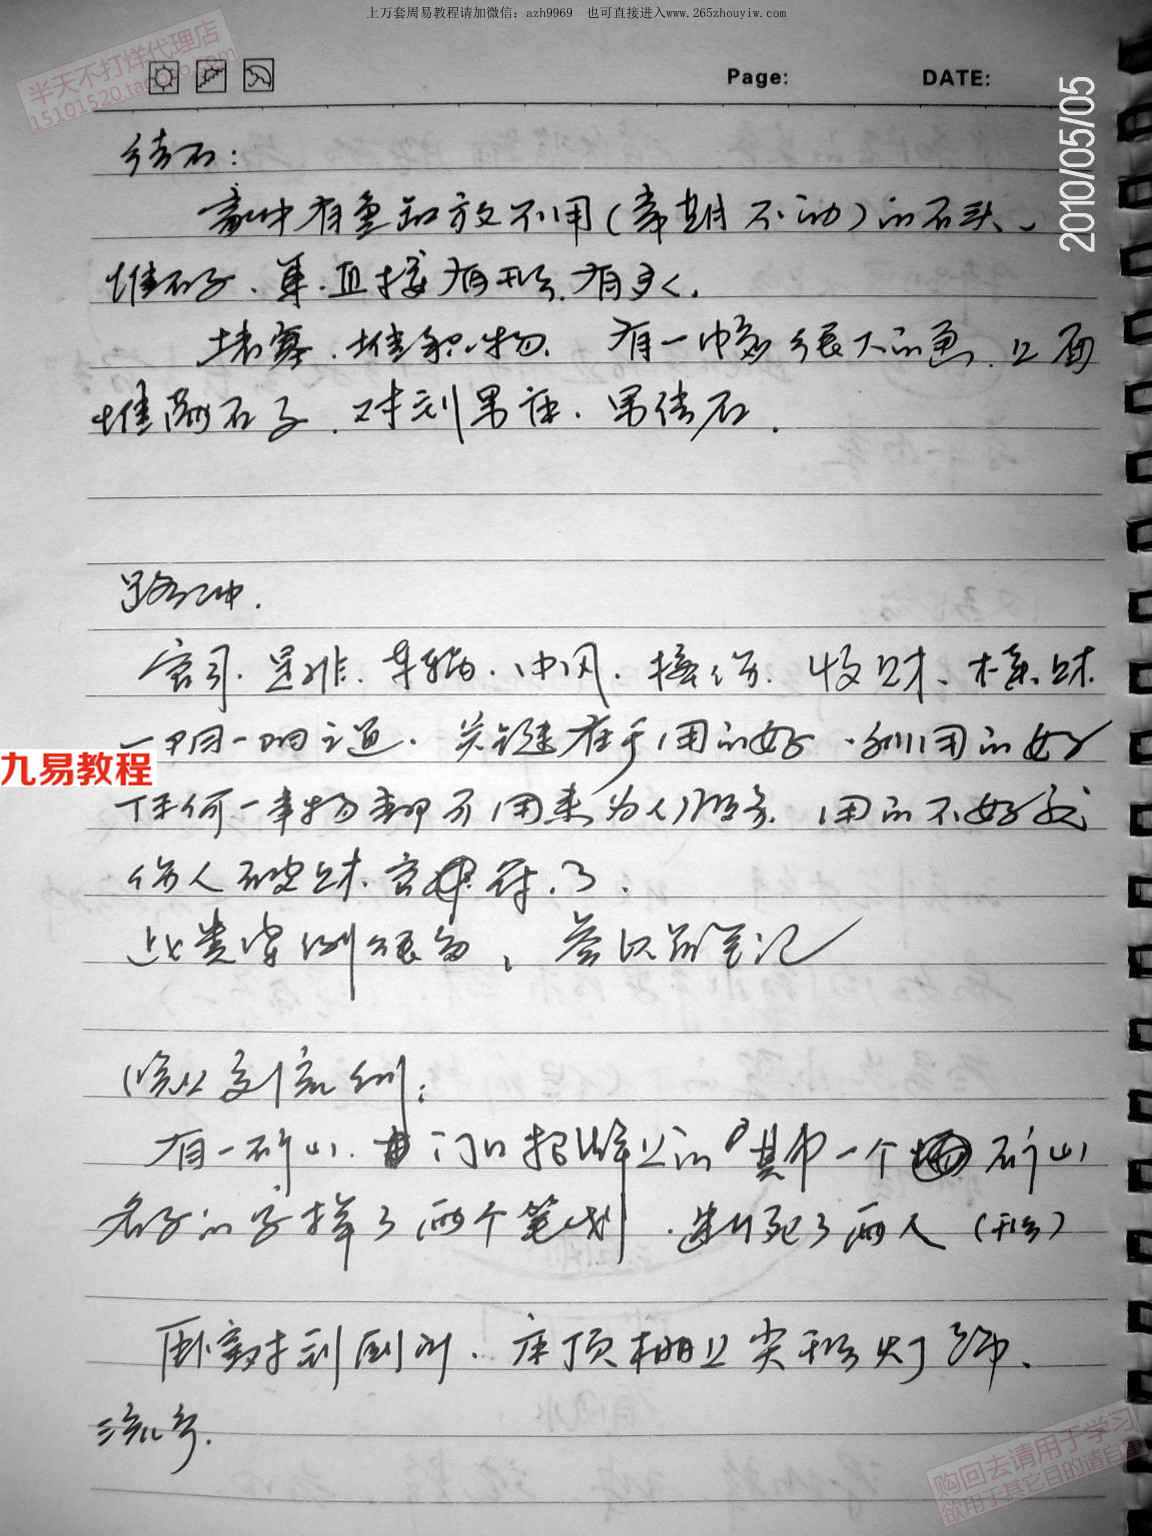 上万套周易教程请加微信：azh9969 也可直接进入www.265zhouyiw.com
半天不打烊代理店
15101520.taobao.com
Page: DATE:
2010/05/05
结石：
家中有重叠放不用（常期不动）的石头、
堆石子、单.直接有形.有多久.
堵塞.堆积物. 有一幅很大的画.上面
堆满石子.对到男床.男结石.
路冲.
官司.是非.车祸.中风.接修.收财、横财.
一阴一阳之道.关键在于用的好.利用的好
任何一事物都可用来为人服务.用的不好就
伤人破财.官符了.
此类案例很多，参以前笔记
煞上刻克例：
有一矿山.门口招牌上的 其中一个 矿山
名字的字掉了两个笔划.进外死了两人（形）
卧室对到厕所.床顶棚上尖形灯饰、
流产.
九易教程
购回去请用于学习
欲用于其它目的请自重